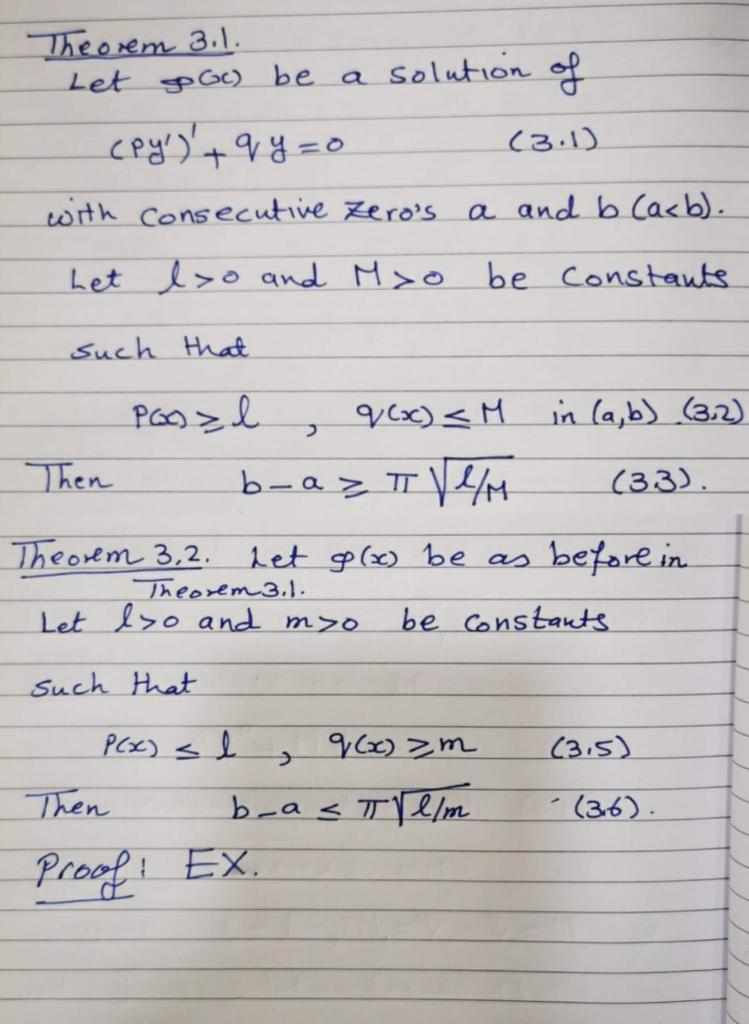 Theorem 3.1.
Let φ(x) be a solution of
(Py')' + q y = 0 (3.1)
with consecutive zero's a and b (a<b).
Let l>0 and M>0 be constants
such that
P(x) ≥ l , q(x) ≤ M in (a,b) (3.2)
Then b-a ≥ π √l/M (3.3).
Theorem 3.2. Let φ(x) be as before in
Theorem 3.1.
Let l>0 and m>0 be constants
such that
P(x) ≤ l , q(x) ≥ m (3.5)
Then b-a ≤ π√l/m (3.6).
Proof: EX.